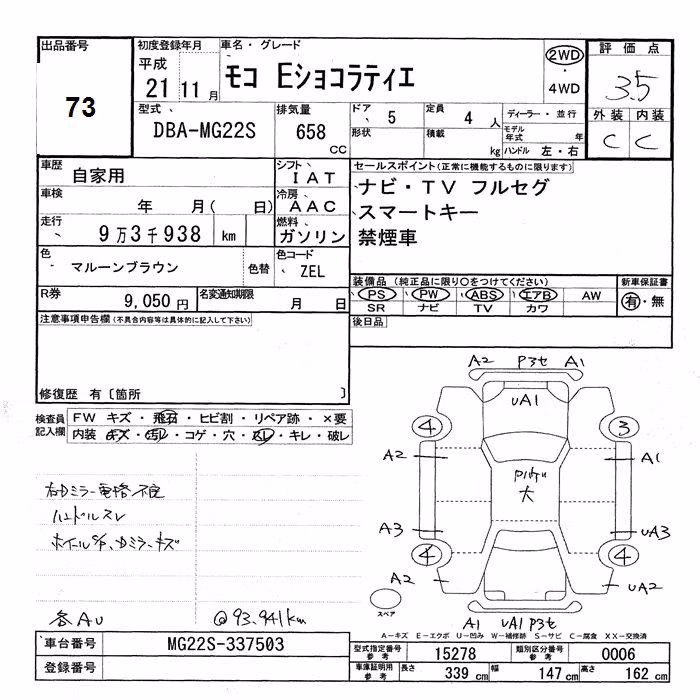 出品番号
73
初度登録年月
平成
21 11月
車名・グレード
モコ Eショコラティエ
2WD
・
4WD
評価点
3.5
外装 内装
C C
型式
DBA-MG22S
排気量
658
CC
ドア 5
形状
定員 4 人
積載 kg
ディーラー・並行
モデル年式 年
ハンドル 左・右
車歴
自家用
シフト
IAT
車検
年 月( 日)
冷房
AAC
走行
9万3千938 km
燃料
ガソリン
色
マルーンブラウン
色替
色コード
ZEL
R券
9,050円
名変通知期限
月 日
セールスポイント(正常に機能するものに限ります)
ナビ・TV フルセグ
スマートキー
禁煙車
装備品 (純正品に限り○をつけてください)
PS PW ABS エアB AW
SR ナビ TV カワ
新車保証書
有・無
後日品
注意事項申告欄(不具合内容等は具体的に記入して下さい)
修復歴 有〔箇所 〕
検査員記入欄
FW キズ・飛石・ヒビ割・リペア跡・×要
内装 キズ・汚レ・コゲ・穴・スレ・キレ・破レ
ハンドルスレ
各AU
@93,941km
A2 P3セ A1
UA1
4 3
A2 A1
大
A3 UA3
4 4
A2 UA2
スペア
A1 UA1 P3セ
A-キズ E-エクボ U-凹み W-補修跡 S-サビ C-腐食 XX-交換済
車台番号
MG22S-337503
登録番号
型式指定番号
参考
15278
類別区分番号
参考
0006
車庫証明用
参考
長さ 339 cm 幅 147 cm 高さ 162 cm